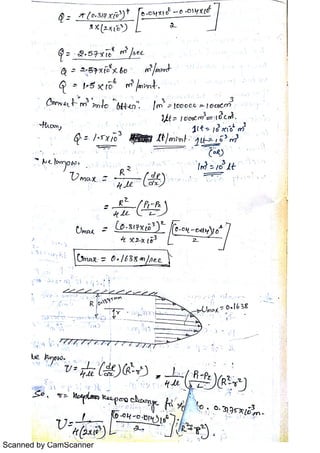 Q = π(0.317×10⁻³)⁴ / 8×(2×10⁻³) [0.04×10⁶ − 0.014×10⁶ / 2]
Q = 2.57×10⁻⁸ m³/sec
Q = 2.57×10⁻⁸×60 m³/mint
Q = 1.5×10⁻⁶ m³/mint.
Convert m³ into 1m³ =
1Lt = 1000cm³ =
1Lt =
then, Q = 1.5×10⁻³ lt/mint. 1Lt = 10⁻³ m³
(OR)
1m³ = 10³ Lt
We know.
Umax = R²/4μ (dp/dx)
= R²/4μ (P₁−P₂/L)
Umax = (0.317×10⁻³)² / 4×2×10⁻³ [0.04−0.014)10⁶ / 2]
Umax = 0.1638 m/sec
R r Umax = 0.1638
We know.
U = 1/4μ (dp/dx)(R²−r²) = 1/4μ (P₁−P₂/L)(R²−r²)
So, r = change
U = 1/4(2×10⁻³) [0.04−0.014)10⁶ / 2] (R²−r²).
Scanned by CamScanner